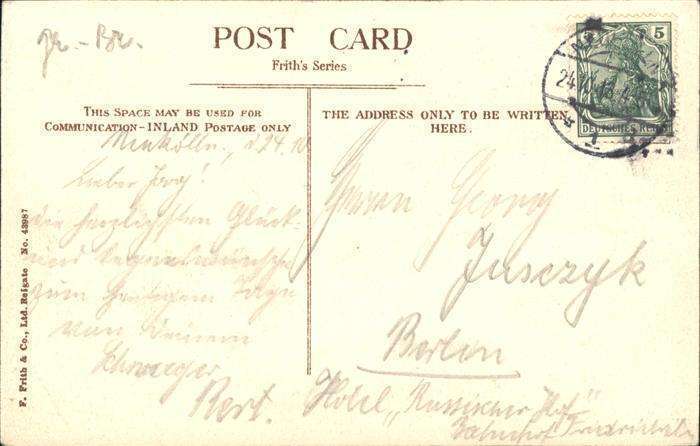 Gr.-Br.
POST CARD
Frith's Series
THIS SPACE MAY BE USED FOR
COMMUNICATION–INLAND POSTAGE ONLY
THE ADDRESS ONLY TO BE WRITTEN
HERE.
5
DEUTSCHES REICH
24.10.13
Neukölln, d. 24.10
Lieber
die herzlichsten Glück-
und Segenswünsche
zum heutigem Tage
von Deinem
Schwager
Bert.
Herrn Georg
Jusczyk
Berlin
Hotel „Russischer Hof"
Bahnhof Friedrichstr.
F. Frith & Co., Ltd. Reigate No. 43987